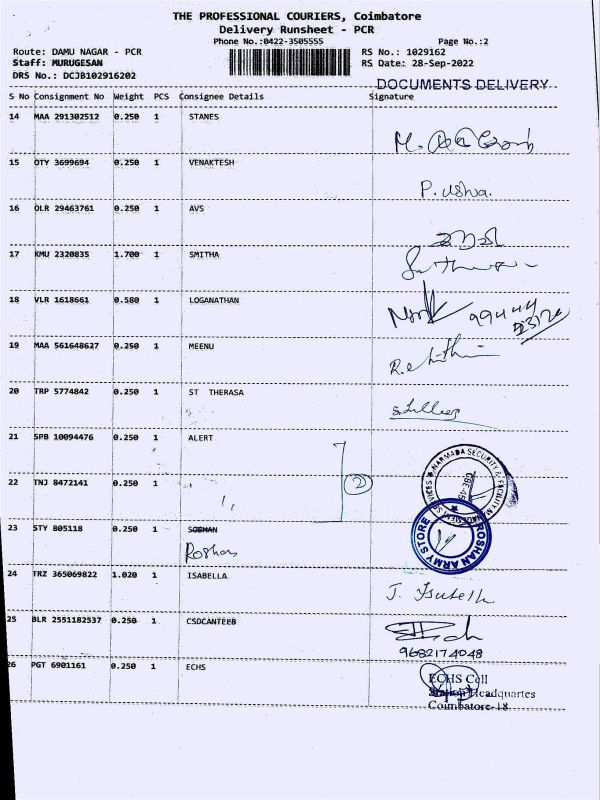 THE PROFESSIONAL COURIERS, Coimbatore
Delivery Runsheet - PCR
Phone No.:0422-3505555 Page No.:2
Route: DAMU NAGAR - PCR RS No.: 1029162
Staff: MURUGESAN RS Date: 28-Sep-2022
DRS No.: DCJB102916202
DOCUMENTS DELIVERY
S No Consignment No Weight PCS Consignee Details Signature
14 MAA 291302512 0.250 1 STANES
15 OTY 3699694 0.250 1 VENAKTESH
P. Usha.
16 OLR 29463761 0.250 1 AVS
17 KMU 2320835 1.700 1 SMITHA
18 VLR 1618661 0.580 1 LOGANATHAN
19 MAA 561648627 0.250 1 MEENU
20 TRP 5774842 0.250 1 ST THERASA
21 SPB 10094476 0.250 1 ALERT
NARMADA SECURITY & FACILITY MANAGEMENT SERVICES
22 TNJ 8472141 0.250 1
2
23 STY 805118 0.250 1
Roshan
ROSHAN ARMY STORE
24 TRZ 365069822 1.020 1 ISABELLA
25 BLR 2551182537 0.250 1 CSDCANTEEB
9682174048
26 PGT 6901161 0.250 1 ECHS
ECHS Cell
Station Headquartes
Coimbatore-18